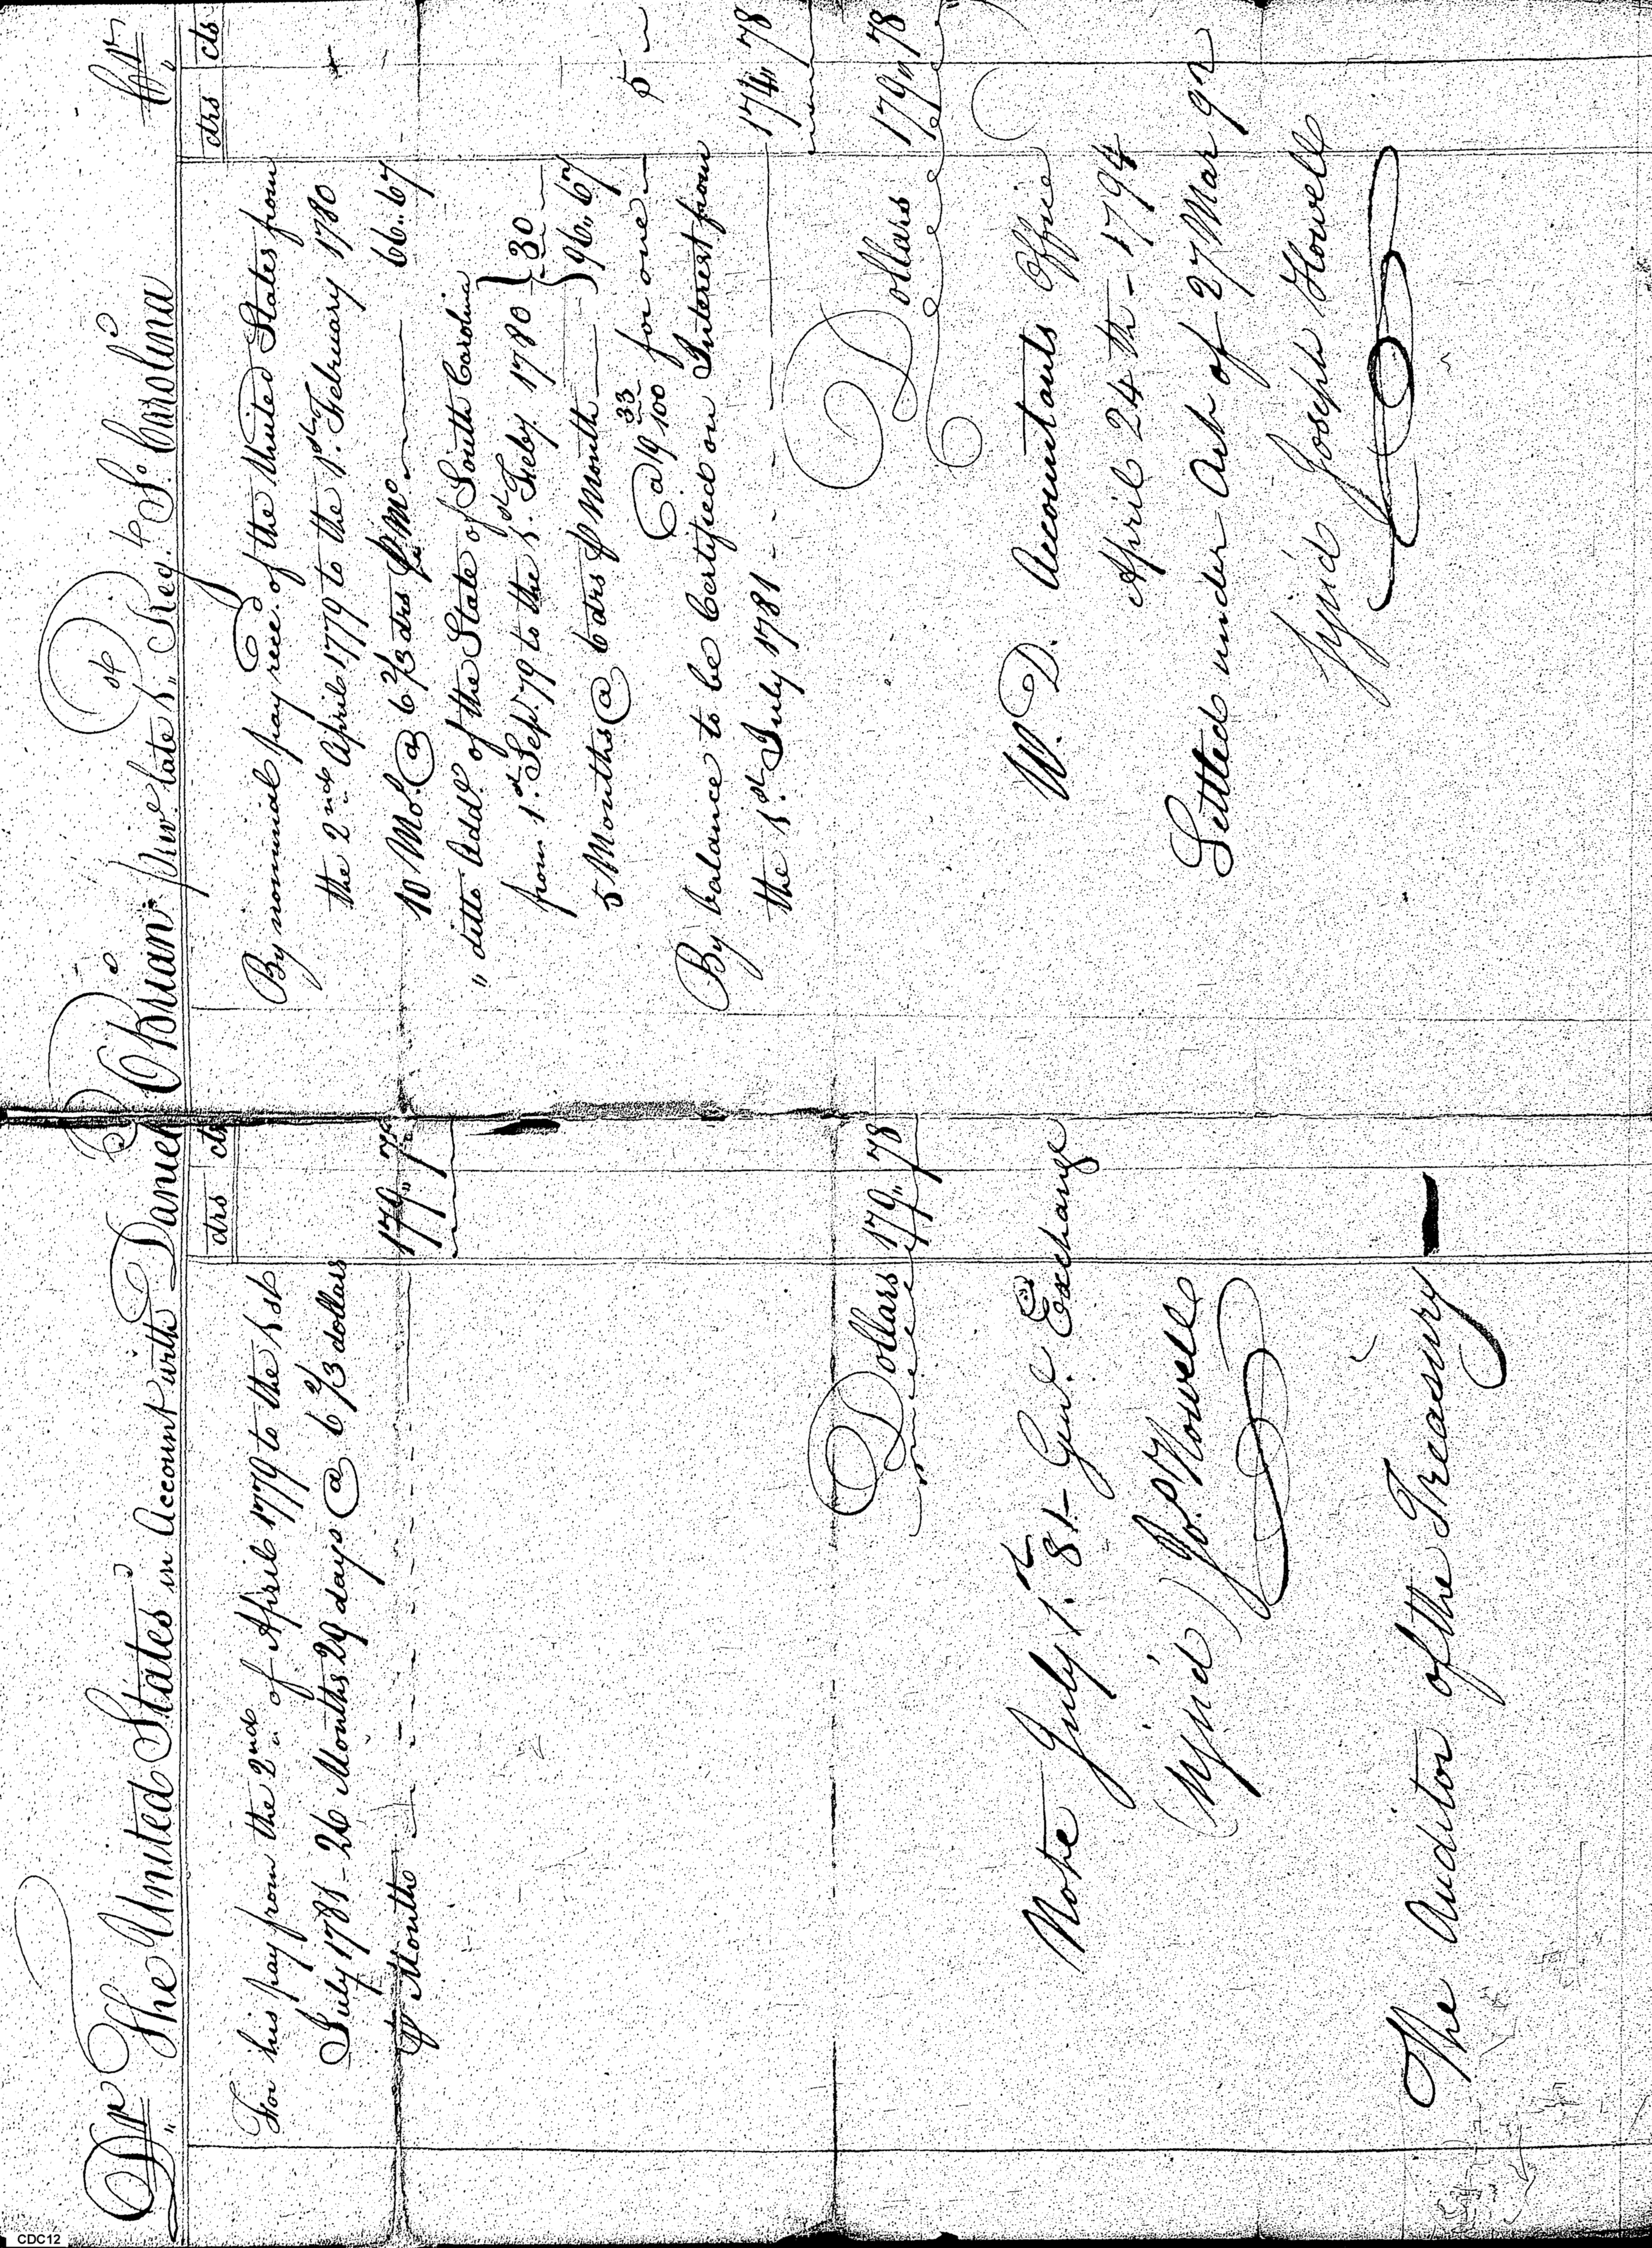 Dr The United States in Account with Daniel OBrian priv.e late 1.st Reg.t So. Carolina Cr
drs cts
For his pay from the 2nd of April 1779 to the 1st
July 1781 - 26 Months 29 days @ 6 2/3 dollars
⅌ Month 179 " 78
Dollars 179 " 78
Note July 1.st 81 - Gen.l Exchange
Sign'd Jo.s Howell
The Auditor of the Treasury
drs cts
By nominal pay rece.d of the United States from
the 2nd April 1779 to the 1.st February 1780
10 Mo.s @ 6 2/3 drs ⅌ Mo. 66 .. 67
" ditto Add.l of the State of South Carolina
from 1.st Sep.r 79 to the 1.st Feby. 1780 } 30
5 Months @ 6 drs ⅌ Month } 96 .. 67
@ 19 33/100 for one 5
By balance to be Certified on Interest from
the 1.st July 1781 174 " 78
Dollars 179 " 78
W. D. Accountants Office
April 24th - 1794
Settled under Act of 27 Mar 92
Sign'd Joseph Howell
CDC12